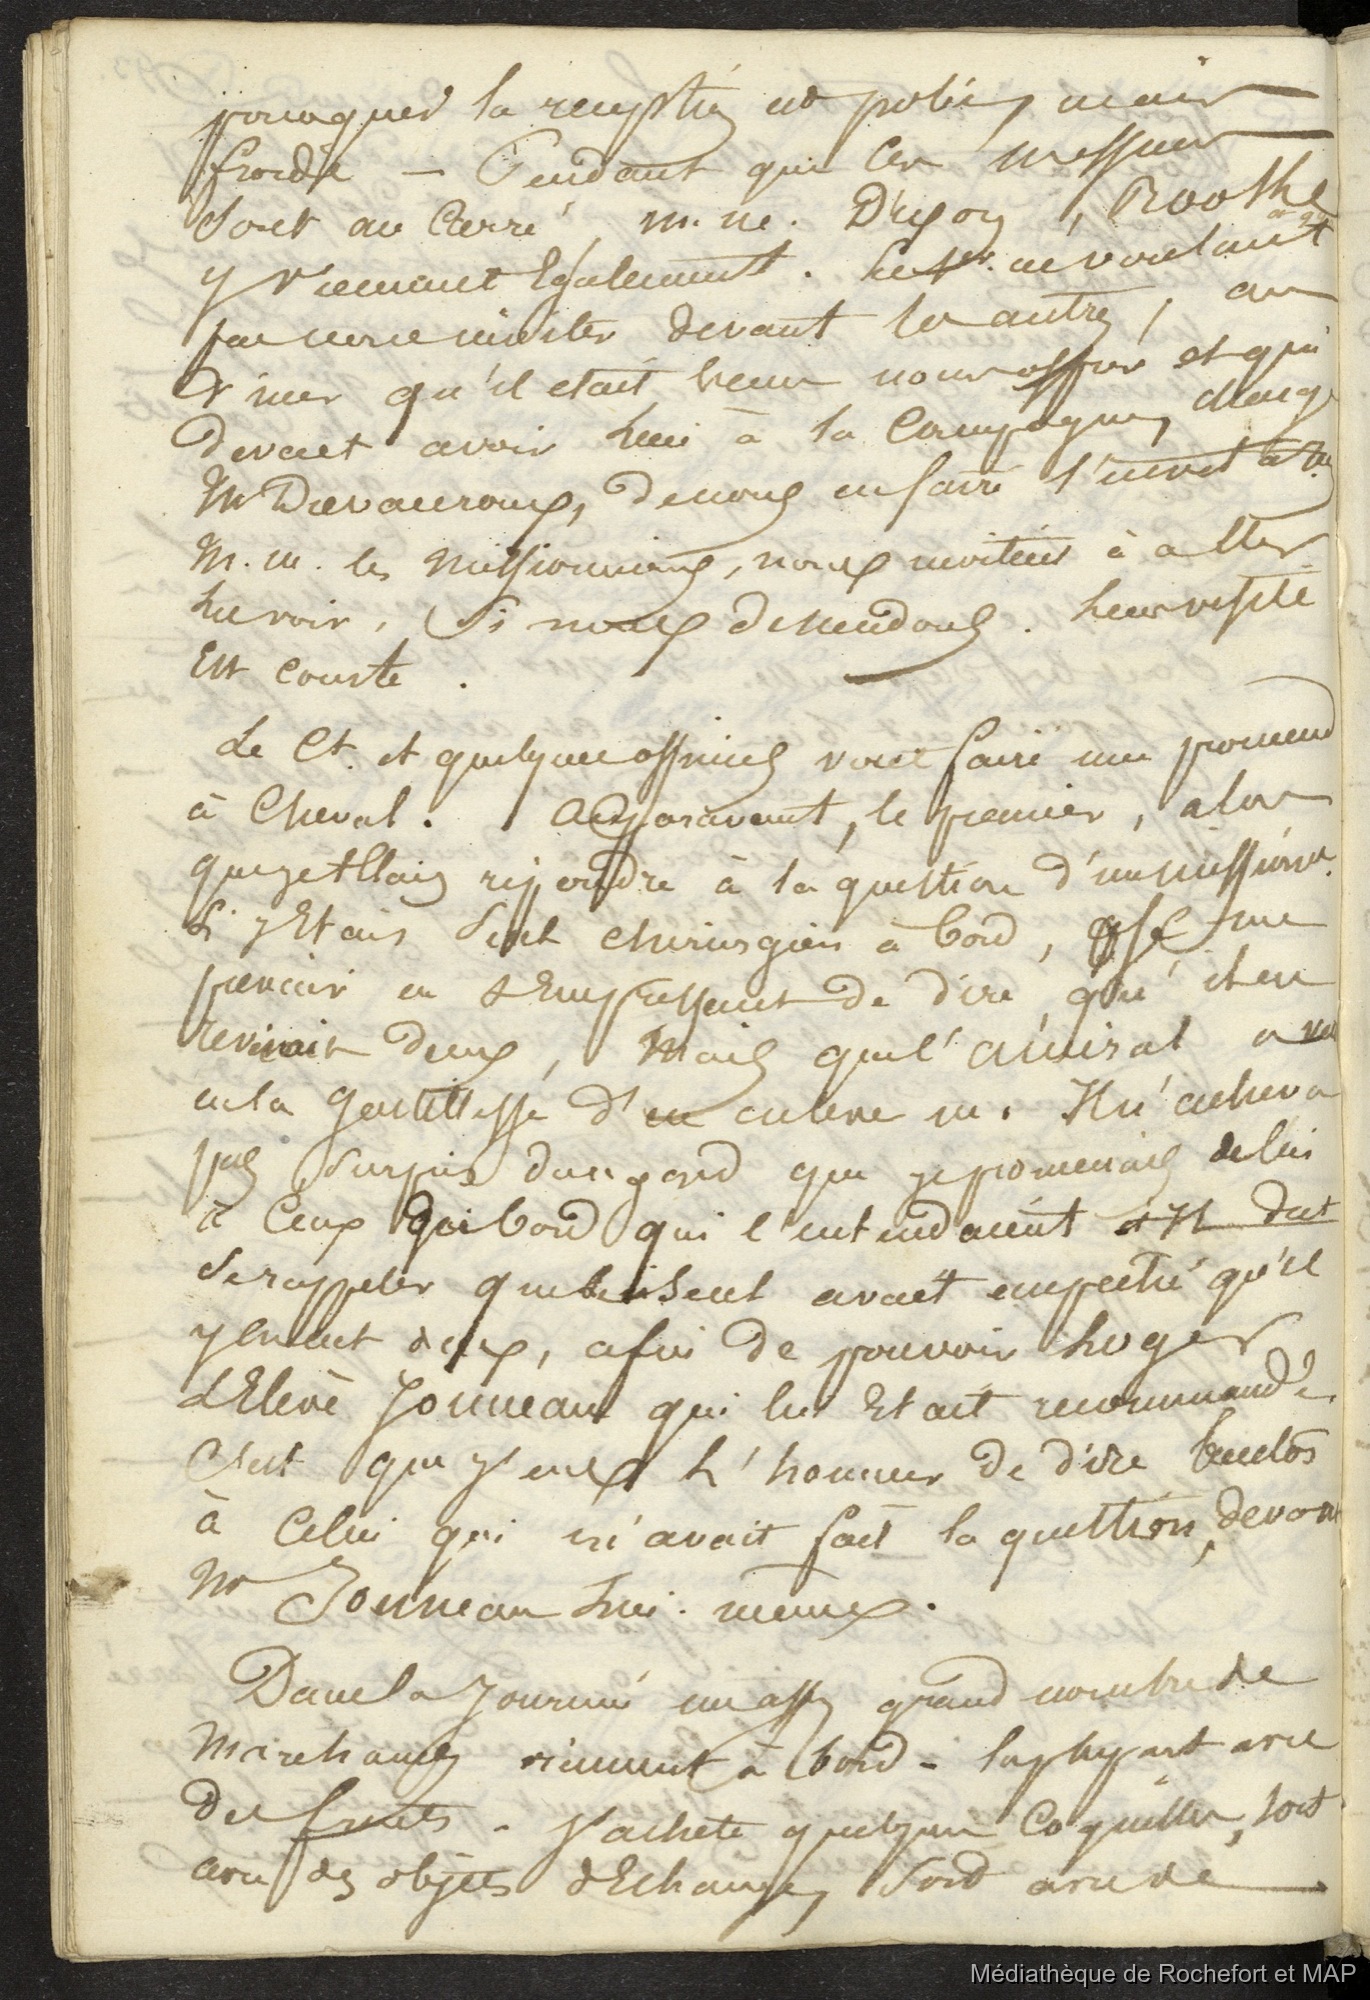 pourquoi la reception est polie, mais
froide – Pendant que ces messieurs
sont au Carré, m. m. Drepoy, Roothe
y viennent Egalement. Le 1er ne voulant
pas devant les autres, au
diner qu'il etait venu nous offrir et qui
devait avoir lieu à la Campagne, charge
Mr Devaucroux, de nous en faire l'invitation
M. m. les missionnaires, nous invitent à aller
les voir, Si nous descendons. Leur visite
Est courte.
Le Ct. et quelques officiers vont faire une promenad
à Cheval. Auparavant, le premier, alors
que je allais repondre à la question d'un missionn.
Si j'Etais seul chirurgien à bord, osa me
prevenir en s'Empressant de dire, qu'il en
revenait deux, Mais que l'amiral a eu
la gentillesse d'en enlever un. Il n'acheva
pas Surpris du regard que je promenais de lui
à Ceux du bord qui l'entendaient et Il dut
se rappeler que lui Seul avait empeché qu'il
y en eut deux, afin de pouvoir loger
L'Eleve Jouneau qui lui Etait recommandé.
C'est que j'eus L'honneur de dire bientôt
à Celui qui m'avait fait la question, devant
Mr Jouneau Lui-meme.
Dans la Journée un assez grand nombre de
Marchands viennent à bord – la plupart avec
des fruits – J'achete quelques Coquilles, soit
avec des objets d'Echange, Soit avec de
Médiathèque de Rochefort et MAP